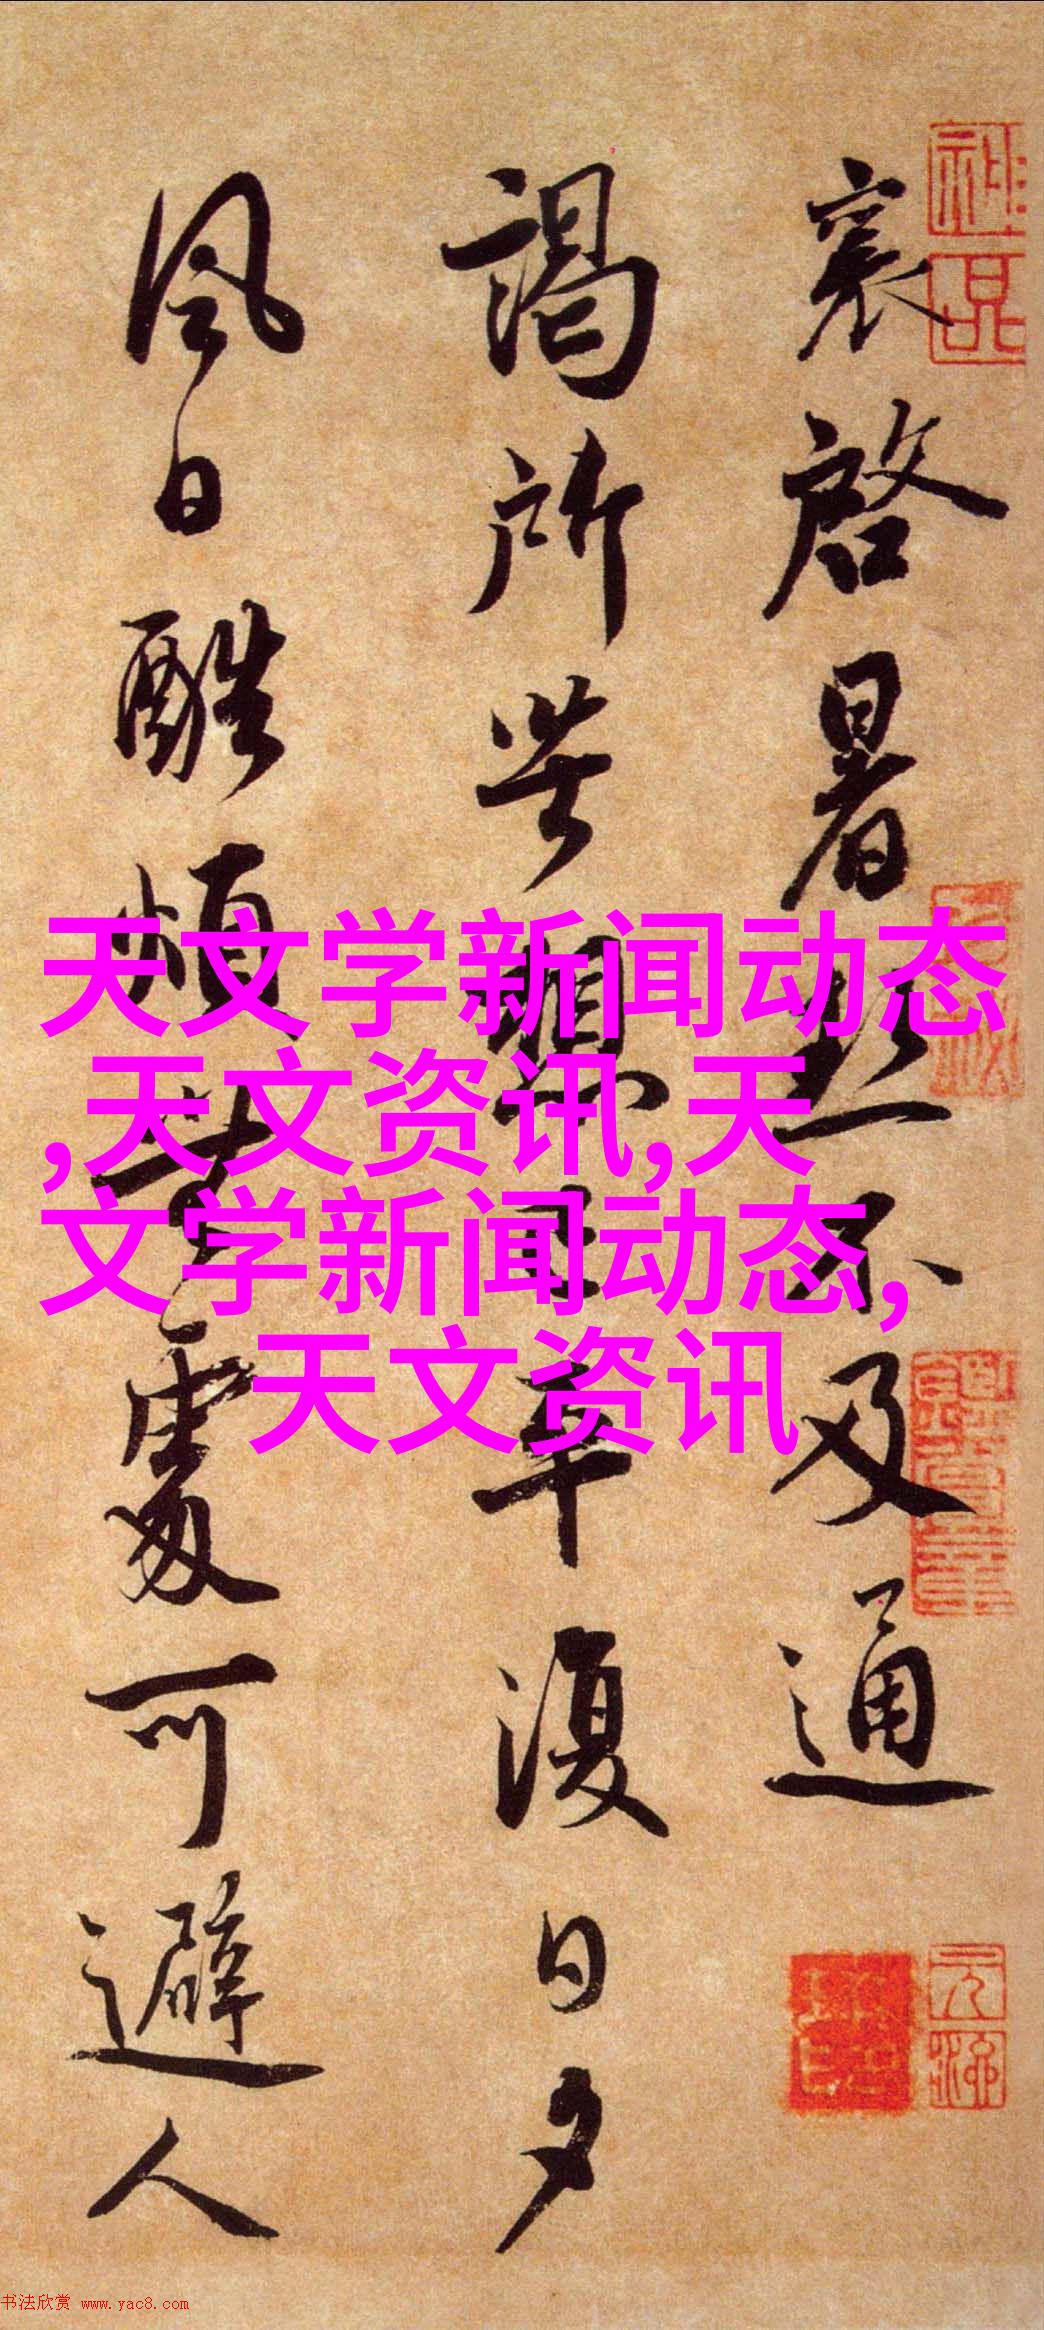 襄啓暑熱不及通
謁所苦想已平復日夕
風日酷煩無處可避人
天文学新闻动态
,天文资讯,天
文学新闻动态,
天文资讯
书法欣赏 www.yac8.com